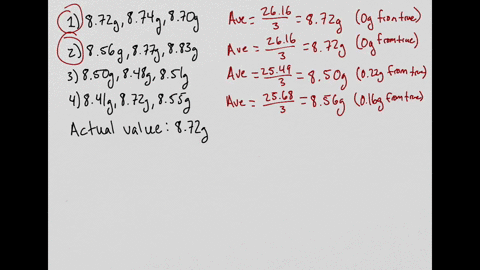 1) 8.72g, 8.74g, 8.70g Ave = 26.16/3 = 8.72g (0g from true)
2) 8.56g, 8.77g, 8.83g Ave = 26.16/3 = 8.72g (0g from true)
3) 8.50g, 8.48g, 8.51g Ave = 25.49/3 = 8.50g (0.22g from true)
4) 8.41g, 8.72g, 8.55g Ave = 25.68/3 = 8.56g (0.16g from true)
Actual value: 8.72g